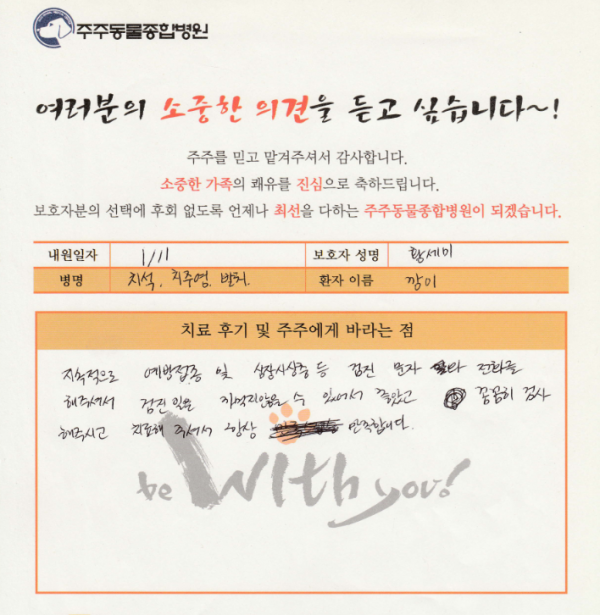 주주동물종합병원
여러분의 소중한 의견을 듣고 싶습니다~!
주주를 믿고 맡겨주셔서 감사합니다.
소중한 가족의 쾌유를 진심으로 축하드립니다.
보호자분의 선택에 후회 없도록 언제나 최선을 다하는 주주동물종합병원이 되겠습니다.
내원일자 1/11 보호자 성명 황세미
병명 치석, 치주염, 발치. 환자 이름 깡이
치료 후기 및 주주에게 바라는 점
지속적으로 예방접종 및 심장사상충 등 검진 문자 와 전화를
해주셔서 검진일은 지키지않을 수 있어서 좋았고 꼼꼼히 검사
해주시고 치료해 주셔서 항상 만족합니다.
be With you!